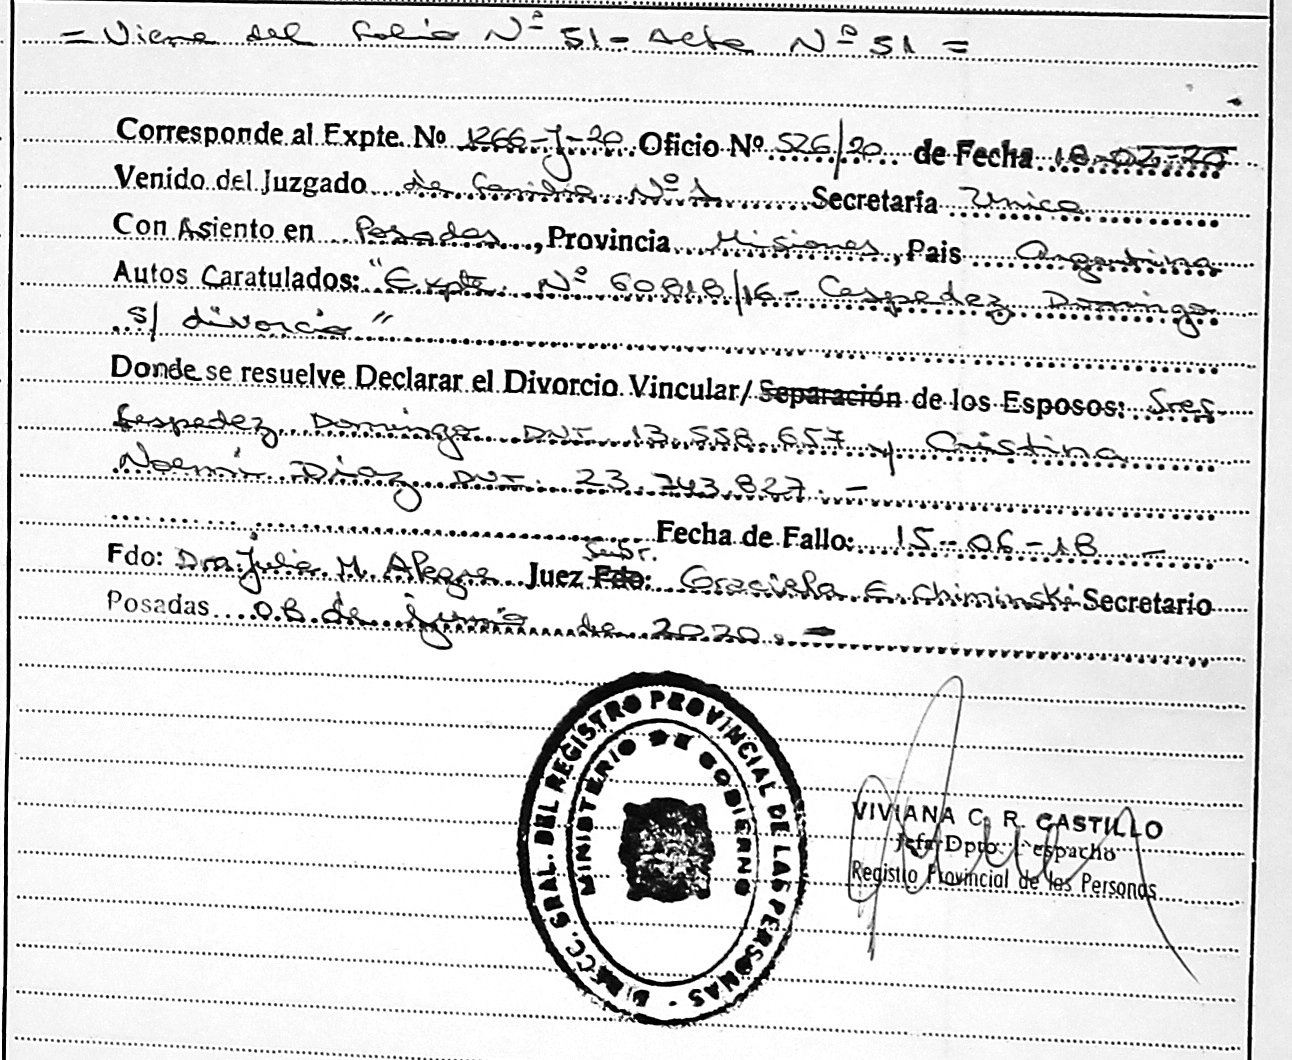 = Viene del folio Nº 51 - Acta Nº 51 =
Corresponde al Expte. Nº 1266-J-20 Oficio Nº 526/20 de Fecha 18-02-20
Venido del Juzgado de Familia Nº 1 Secretaría Unica
Con Asiento en Posadas, Provincia Misiones, Pais Argentina
Autos Caratulados: "Expte. Nº 60818/16 - Cespedez Domingo
s/ divorcio"
Donde se resuelve Declarar el Divorcio Vincular/ Separación de los Esposos: Sres.
Cespedez Domingo DNI 13.558.657 y Cristina
Noemí Díaz DNI. 23.743.827. -
Fecha de Fallo: 15-06-18 -
Subr.
Fdo: Dra Julia M. Alegre Juez Fdo: Graciela E. Chiminski Secretario
Posadas 08 de junio de 2020. -
DIRECC. GRAL. DEL REGISTRO PROVINCIAL DE LAS PERSONAS -
MINISTERIO DE GOBIERNO
VIVIANA C. R. CASTILLO
Jefa Dpto. Despacho
Registro Provincial de las Personas